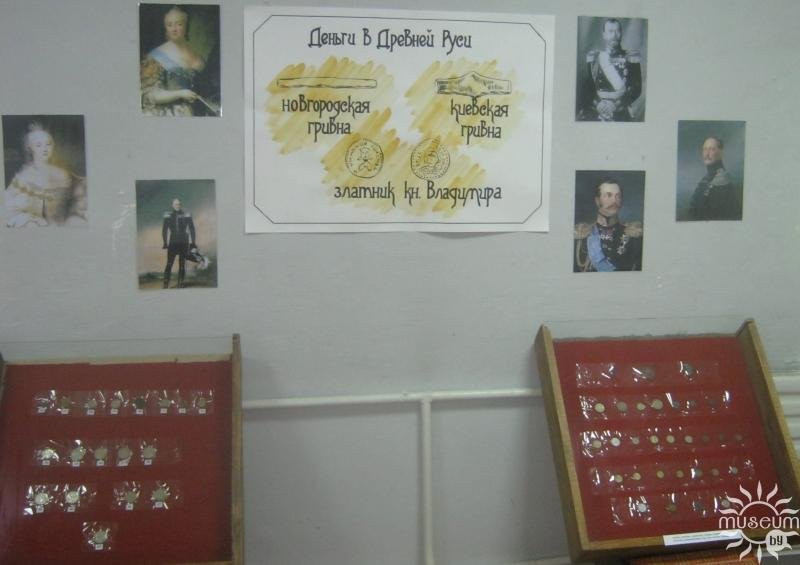 Деньги в Древней Руси
новгородская
гривна
киевская
гривна
златник кн. Владимира
museum
by